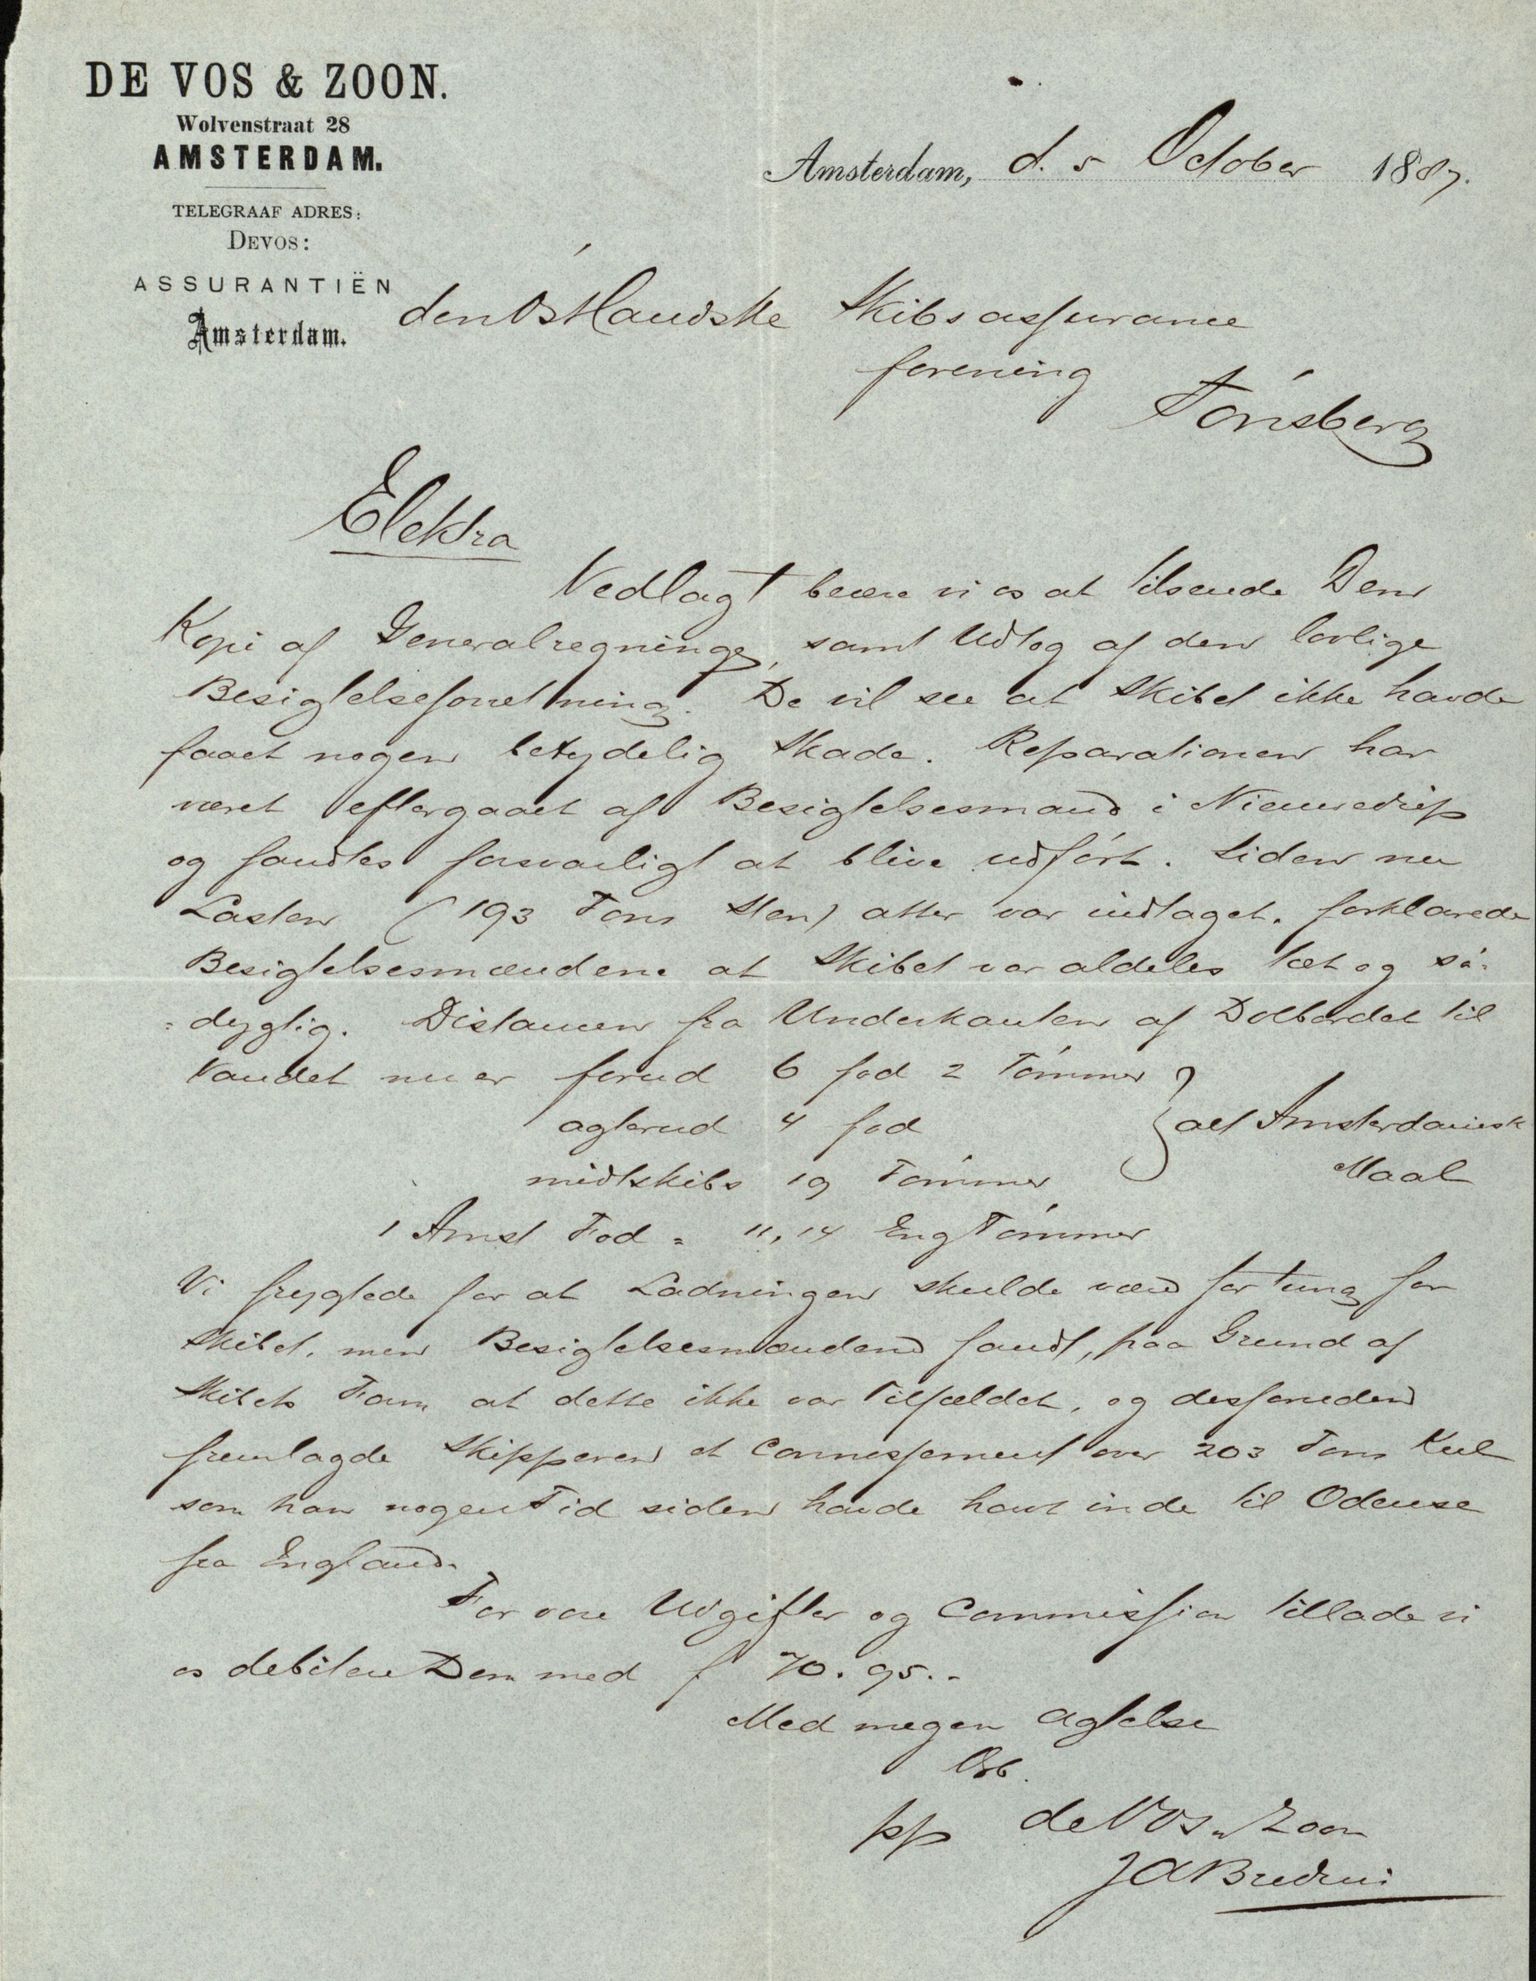 DE VOS & ZOON.
Wolvenstraat 28
AMSTERDAM.
TELEGRAAF ADRES:
DEVOS:
ASSURANTIËN
Amsterdam.
Amsterdam, d. 5 October 1887.
den Óstlandske Skibsassurance
forening
Tónsberg
Elektra
Vedlagt beære vi os at tilsende Dem
Kopi af Generalregninge, samt Udtog af den lovlige
Besigtelsesforretning. De vil see at Skibet ikke havde
faaet nogen betydelig Skade. Reparationen har
været eftergaaet af Besigtelsesmænd i Nieuwediep
og fandtes forsvarligt at blive udfórt. Siden nu
Lasten (193 Tons Sten) atter var indtaget. forklarede
Besigtelsesmændene at Skibet var aldeles tæt og só-
=dygtig. Distancen fra Underkanten af Dolbordet til
Vandet nu er forud 6 fod 2 Tómmer
agterud 4 fod
midtskibs 19 Tómmer
alt Amsterdamsk
Maal
1 Amst Fod = 11,14 Eng Tómmer
Vi frygtede for at Ladningen skulde være for tung for
Skibet, men Besigtelsesmændene fandt, paa Grund af
Skibets Form at dette ikke var Tilfældet, og desforuden
fremlagde Skipperen et Connossement over 203 Tons Kul
som han nogen Tid siden havde havt inde til Odense
fra England.
For vore Udgifter og Commission tillade vi
os debitere Dem med f 70.95.-
Med megen Agtelse
Orb.
pp de Vos & Zoon